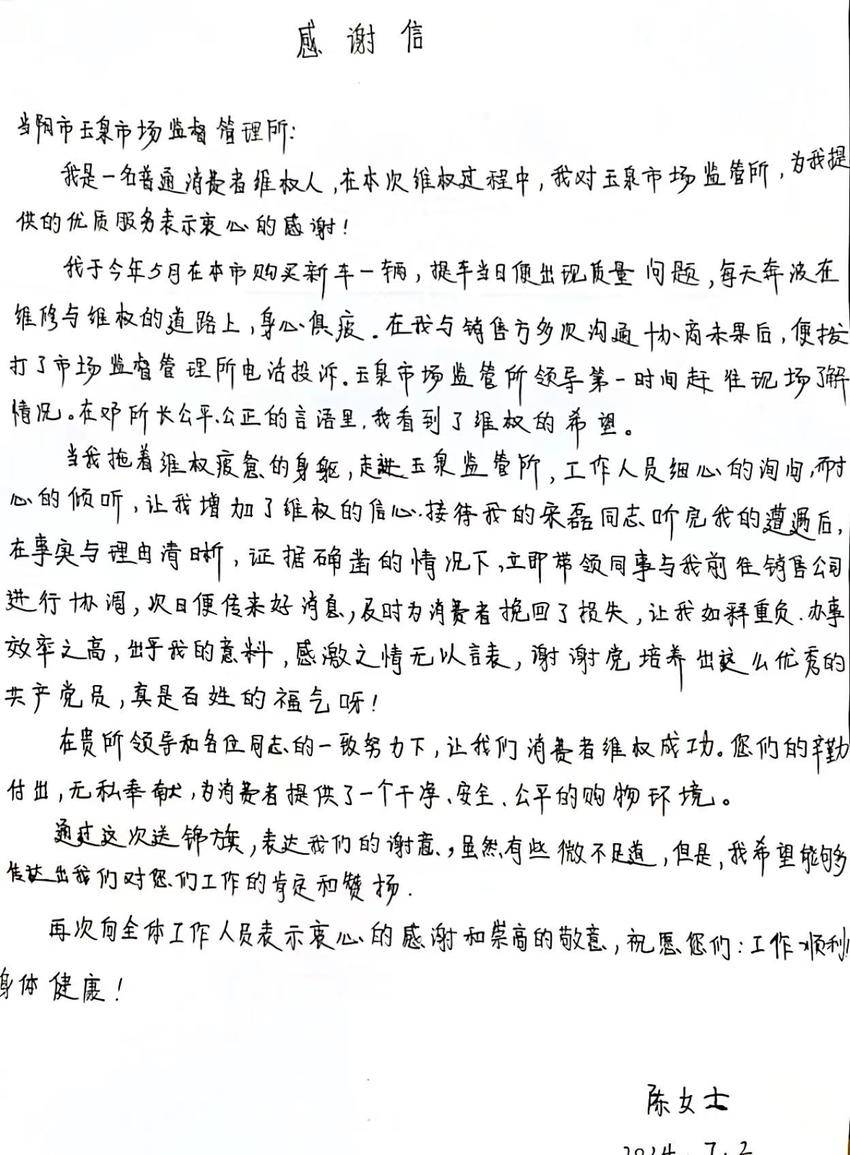 感谢信
当阳市玉泉市场监督管理所:
我是一名普通消费者维权人,在本次维权过程中,我对玉泉市场监管所,为我提
供的优质服务表示衷心的感谢!
我于今年5月在本市购买新车一辆,提车当日便出现质量问题,每天奔波在
维修与维权的道路上,身心俱疲.在我与销售方多次沟通协商未果后,便拨
打了市场监督管理所电话投诉.玉泉市场监管所领导第一时间赶往现场了解
情况。在邓所长公平、公正的言语里,我看到了维权的希望。
当我拖着维权疲惫的身躯,走进玉泉监管所,工作人员细心的询问,耐
心的倾听,让我增加了维权的信心.接待我的宋磊同志听完我的遭遇后,
在事实与理由清晰,证据确凿的情况下,立即带领同事与我前往销售公司
进行协调,次日便传来好消息,及时为消费者挽回了损失,让我如释重负.办事
效率之高,出乎我的意料,感激之情无以言表,谢谢党培养出这么优秀的
共产党员,真是百姓的福气呀!
在贵所领导和各位同志的一致努力下,让我们消费者维权成功。您们的辛勤
付出,无私奉献,为消费者提供了一个干净、安全、公平的购物环境。
通过这次送锦旗,表达我们的谢意,虽然有些微不足道,但是,我希望能够
传达出我们对您们工作的肯定和赞扬.
再次向全体工作人员表示衷心的感谢和崇高的敬意,祝愿您们:工作顺利!
身体健康!
陈女士
2024.7.2